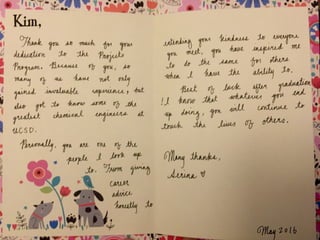 Kim,
Thank you so much for your
dedication to the Projects
Program. Because of you, so
many of us have not only
gained invaluable experience, but
also got to know some of the
greatest chemical engineers at
UCSD.
Personally, you are one of the
people I look up
to. From giving
career
advice
honestly to
extending your kindness to everyone
you meet, you have inspired me
to do the same for others
when I have the ability to.
Best of luck after graduation!
I know that whatever you end
up doing, you will continue to
touch the lives of others.
Many thanks,
Serina ♡
May 2016